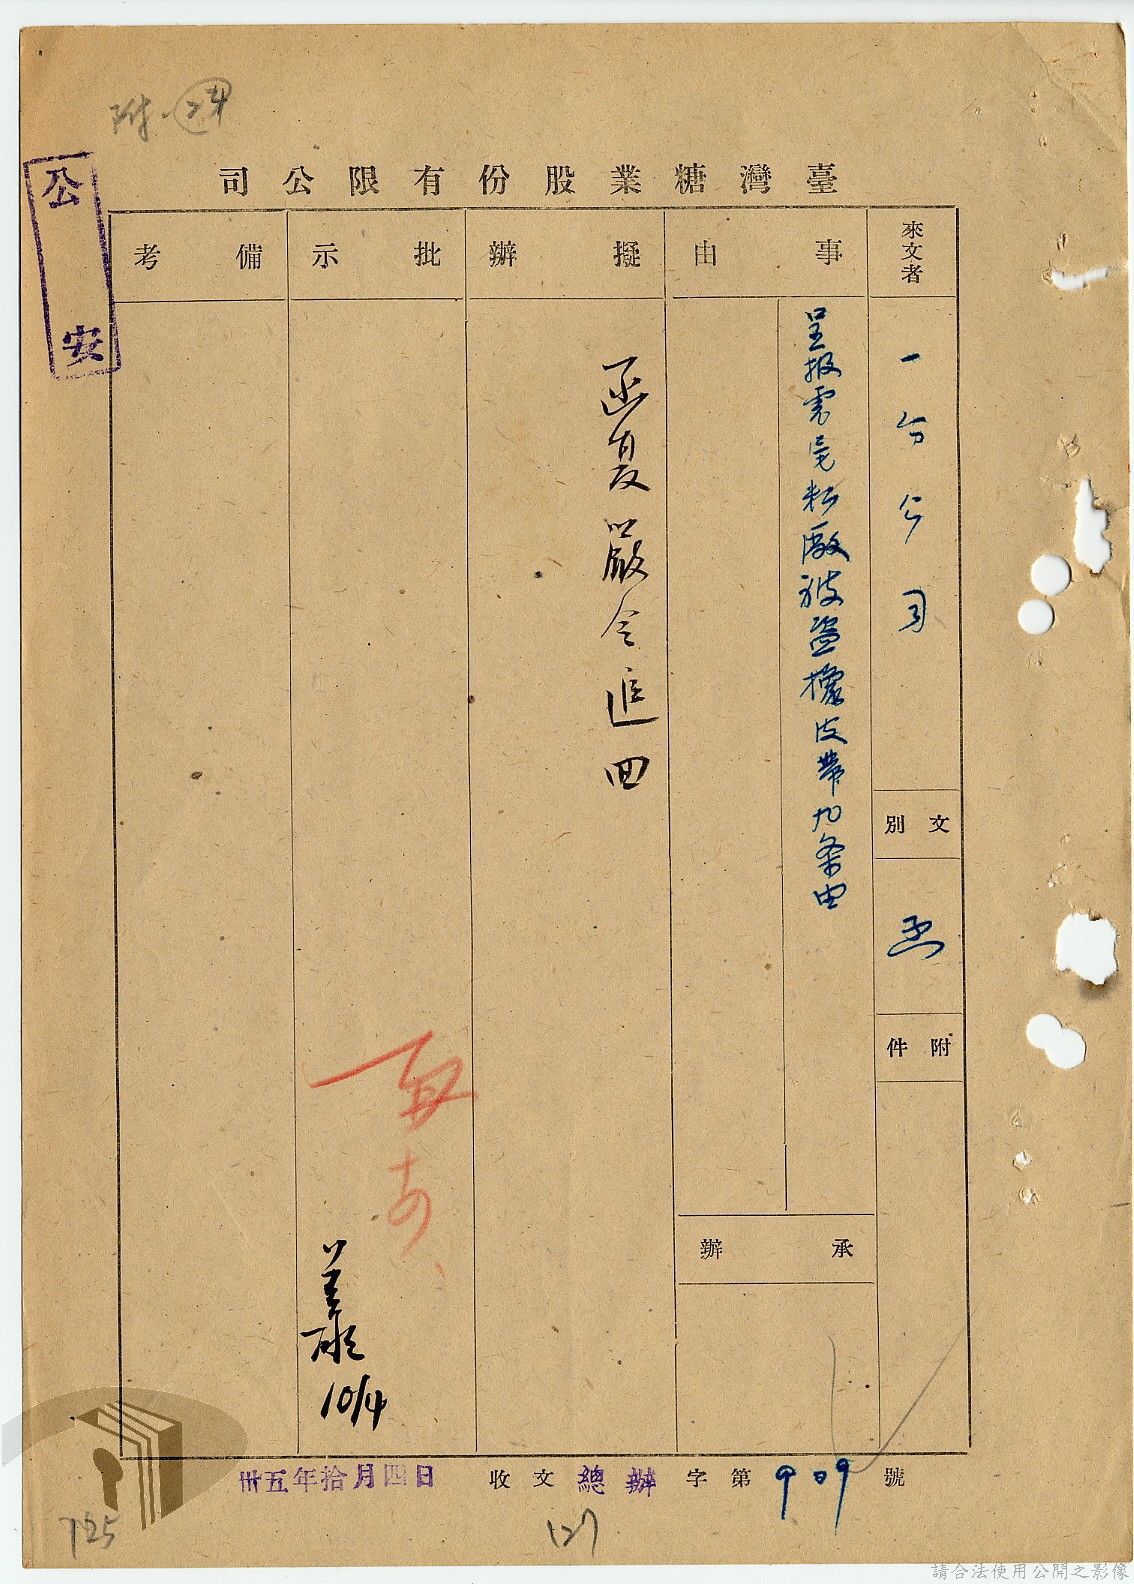 附
臺灣糖業股份有限公司
公安
來文者
一分公司
文別
函
附件
事由
呈報虎尾糖廠被盜橡皮帶九条由
承辦
擬辦
函复嚴令追回
批示
10/4
備考
卅五年拾月四日
收文總辦字第909號
725
127
請合法使用公開之影像